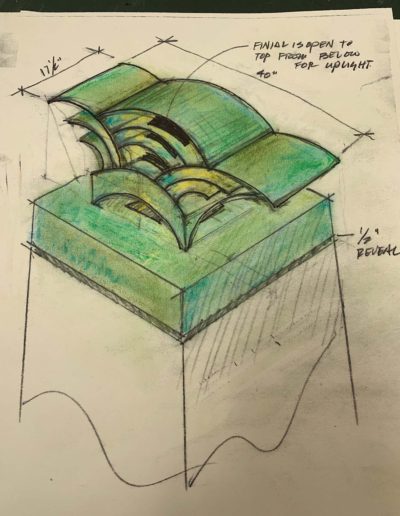 17 1/2"
FINIAL IS OPEN TO
TOP FROM BELOW
FOR UPLIGHT
40"
1/2"
REVEAL